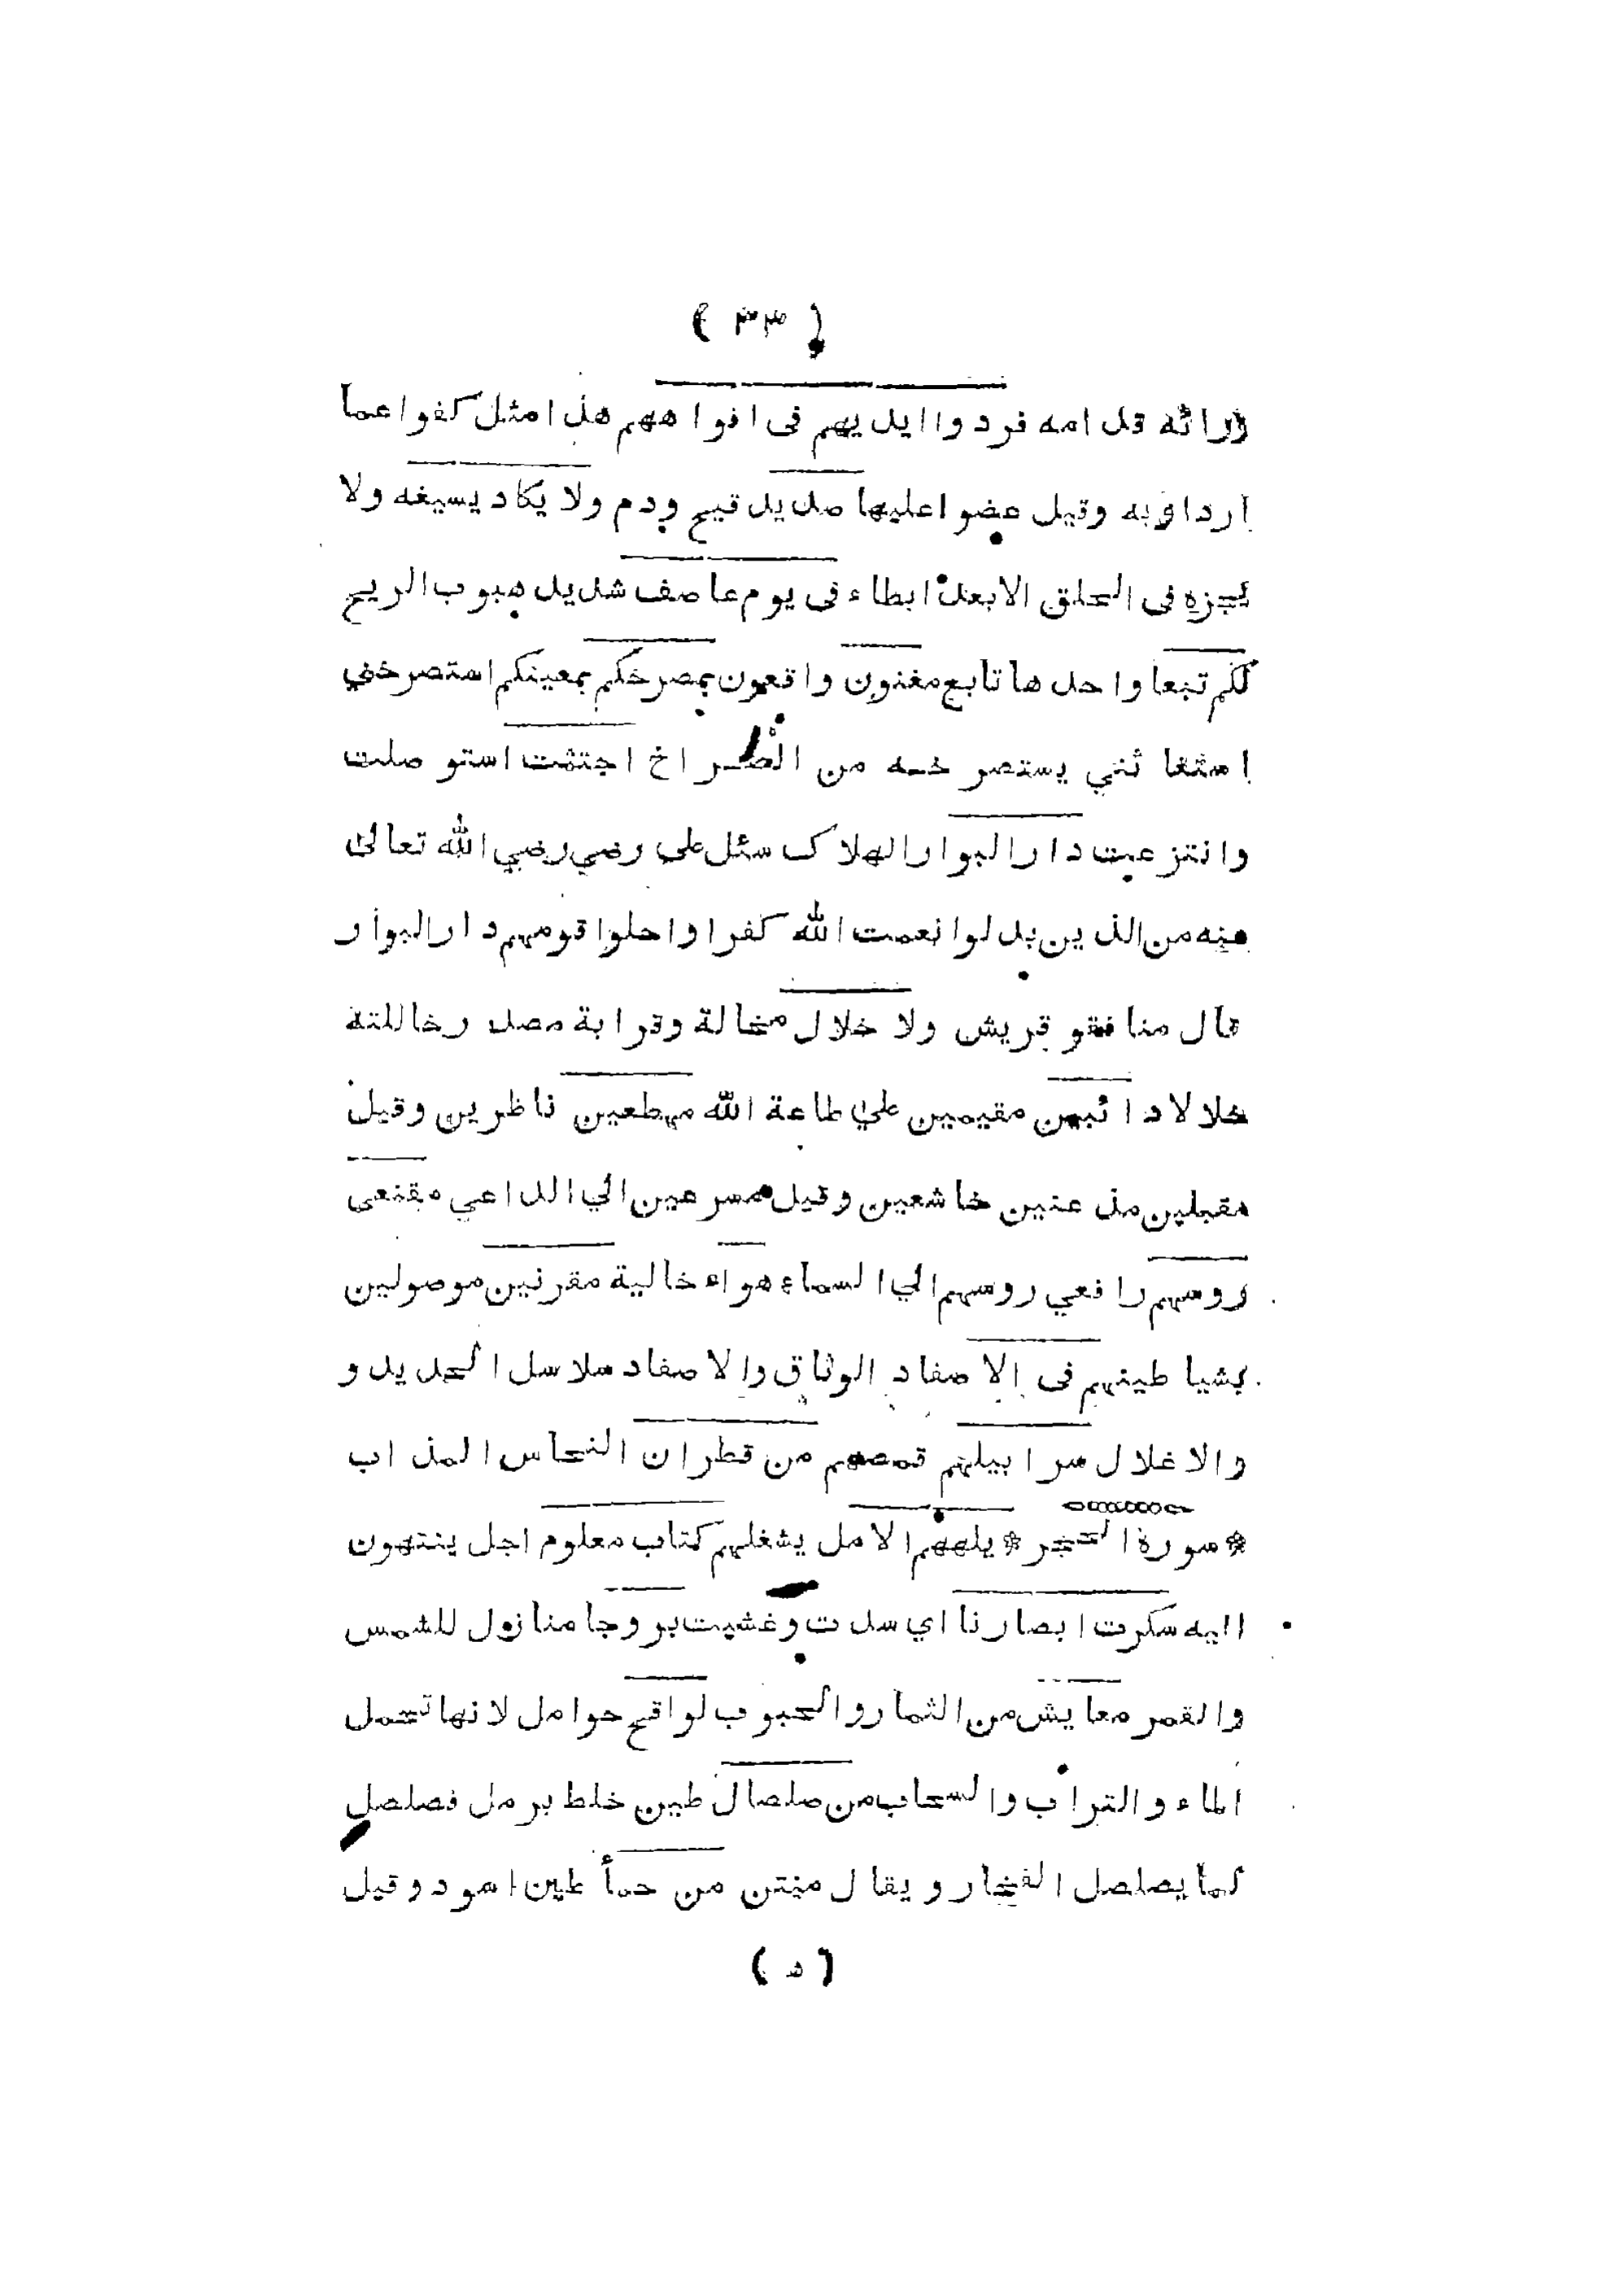 ( ٣٣ )
ورائه قدامه فردوا ايديهم فى افواههم هذا مثل كفوا عما
ارداو به وقيل عضوا عليها صديد قيح ودم ولا يكاد يسيغه ولا
يجزه فى الحلق الا بعد ابطاء فى يوم عاصف شديد هبوب الريح
لكم تبعا واحدها تابع مغنون واقعون بمصرخكم بمعينكم استصرخني
استغاثني يستصرخه من الصراخ اجتثت استوصلت
وانتزعت دار البوار الهلاك سئل على رضي رضي الله تعالى
عنه من الذين بدلوا نعمت الله كفرا واحلوا قومهم دار البوار
قال منافقو قريش ولا خلال مخالة وقرابة مصدر خاللته
خلالا دائبين مقيمين علي طاعة الله مهطعين ناظرين وقيل
مقبلين مذعنين خاشعين وقيل مسرعين الي الداعي مقنعى
روسهم رافعي روسهم الي السماء هواء خالية مقرنين موصولين
بشياطينهم فى الاصفاد الوثاق والاصفاد سلاسل الحديد و
والاغلال سرابيلهم قمصهم من قطران النحاس المذاب
* سورة الحجر * يلههم الامل يشغلهم كتاب معلوم اجل ينتهون
اليه سكرت ابصارنا اي سدت وغشيت بروجا منازول للشمس
والقمر معايش من الثمار والحبوب لواقح حوامل لانها تحمل
الماء والتراب والسحاب من صلصال طين خلط برمل فصلصل
كما يصلصل الفخار ويقال منتن من حمأ طين اسود وقيل
( ٥ )